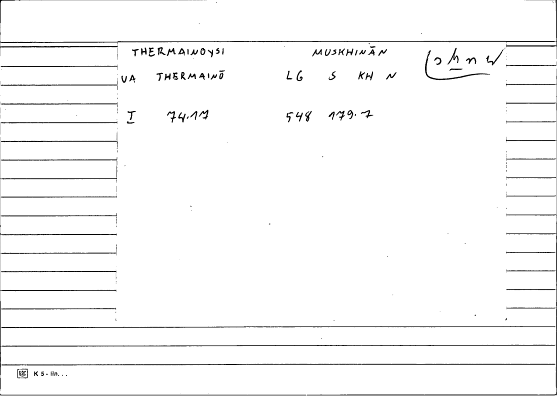 THERMAINOYSI MUSKHINĀN
UA THERMAINŌ LG S KH N
I 74.17 548 179.7
K 5 -